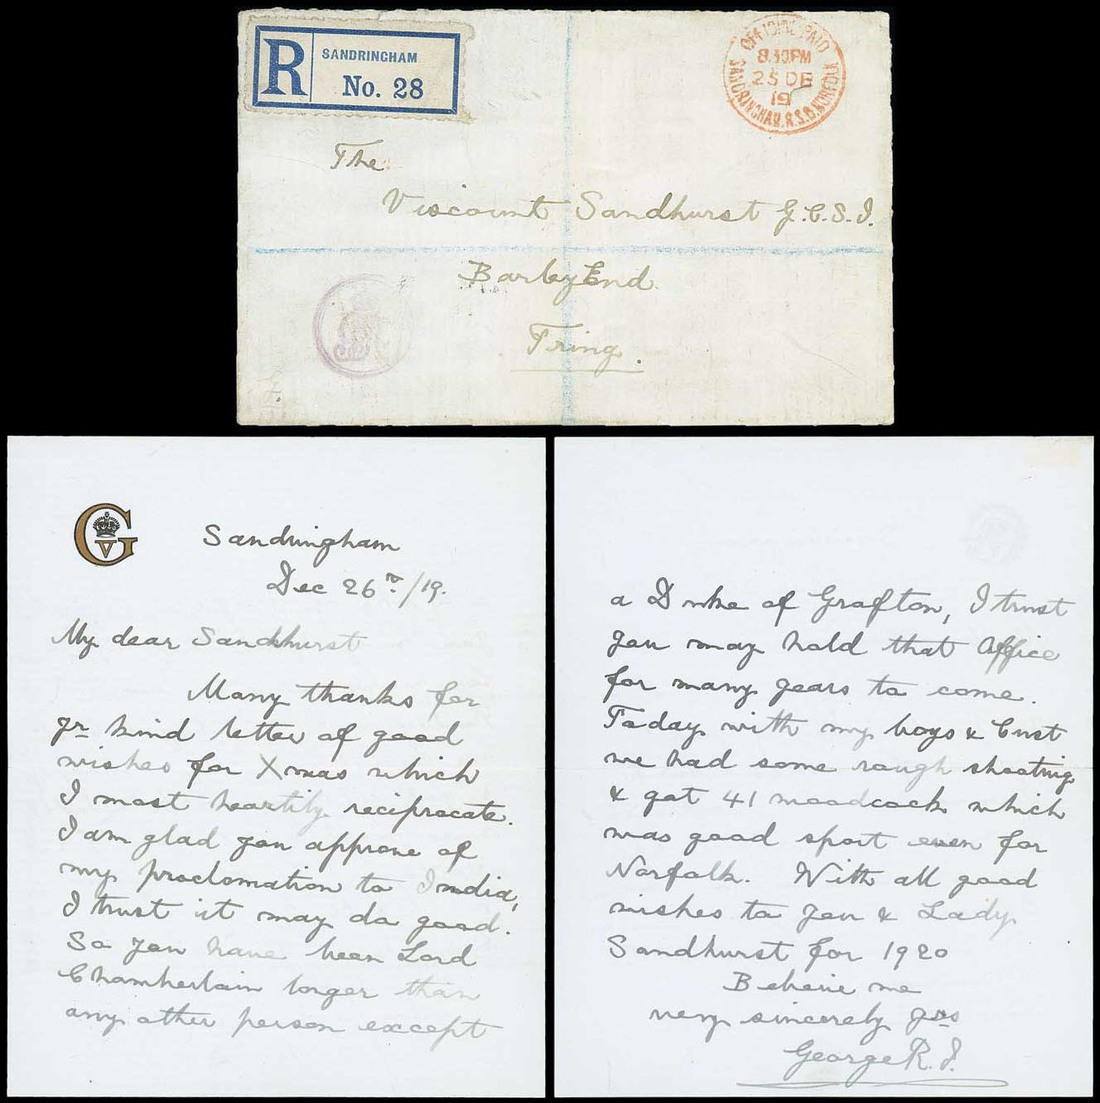 R
SANDRINGHAM
No. 28
OFFICIAL PAID
8.30PM
DE
19
SANDRINGHAM. R.S.O. NORFOLK
The
Viscount Sandhurst G.C.S.I.
Barley End
Tring.
G
V
Sandringham
Dec 26th/19.
My dear Sandhurst
Many thanks for
yr kind letter of good
wishes for Xmas which
I most heartily reciprocate.
I am glad you approve of
my proclamation to India,
I trust it may do good.
So you have been Lord
Chamberlain longer than
any other person except
a Duke of Grafton, I trust
you may hold that Office
for many years to come.
Today with my boys & Cust
we had some rough shooting
& got 41 woodcock which
was good sport even for
Norfolk. With all good
wishes to you & Lady
Sandhurst for 1920
Believe me
very sincerely yrs
George R.I.